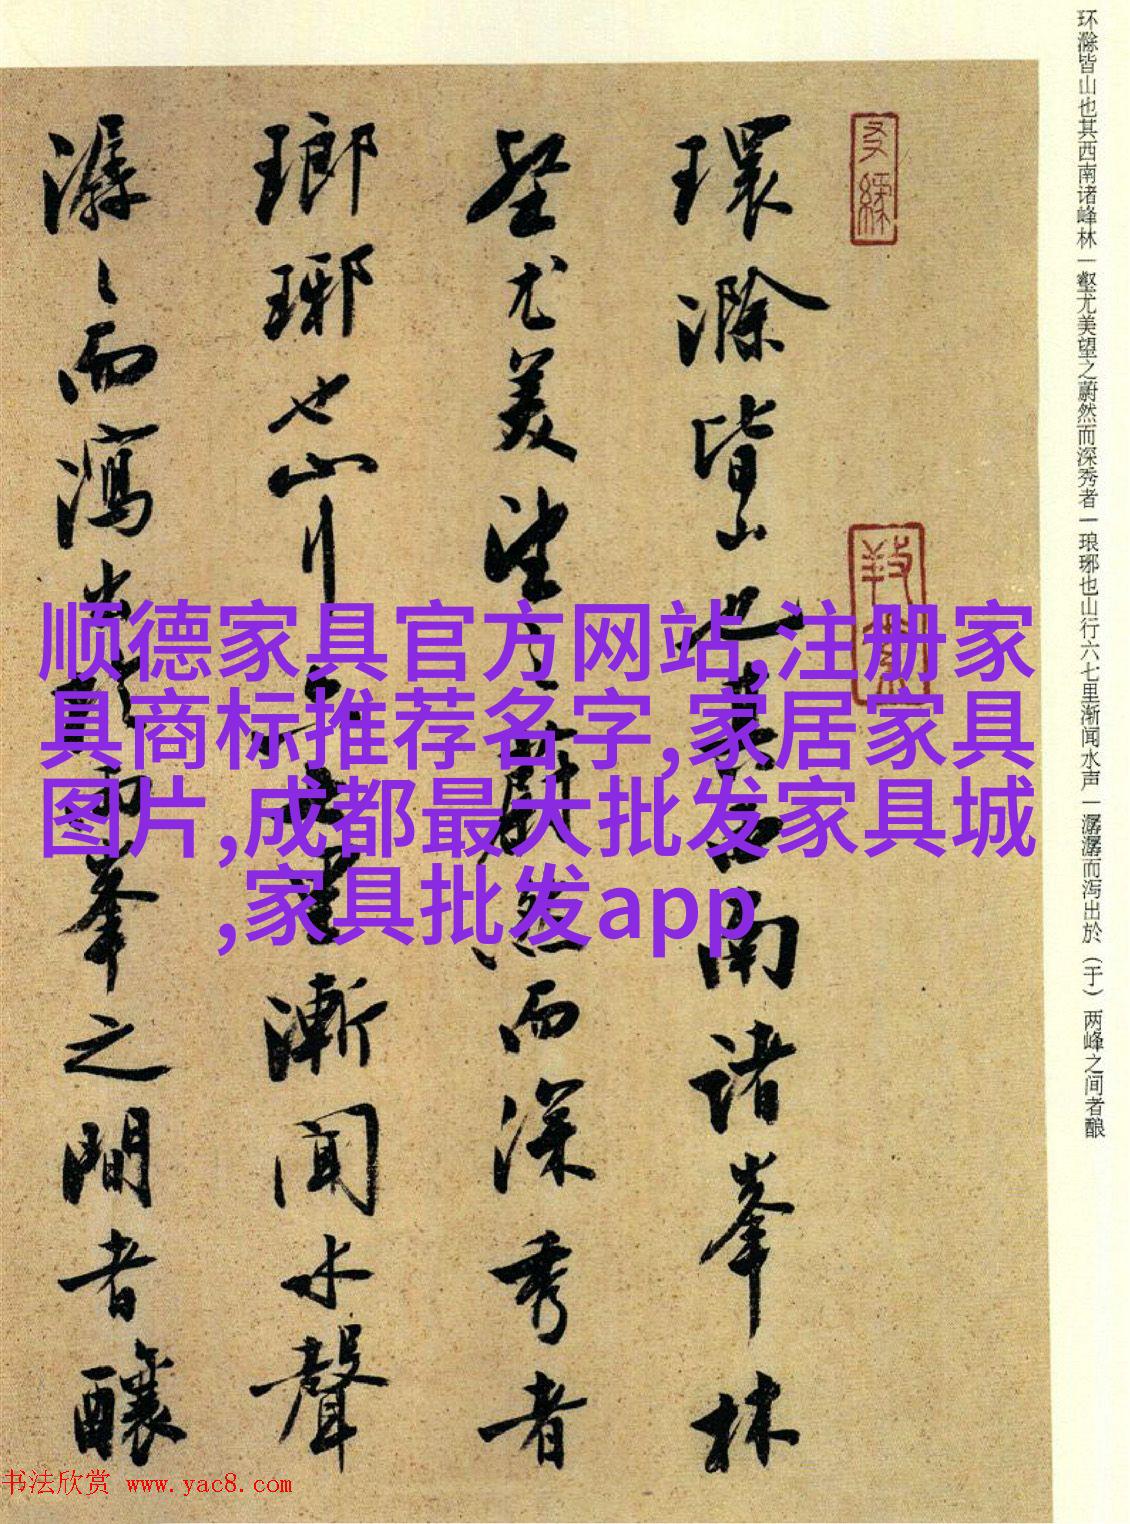 环滁皆山也其西南诸峰林一壑尤美望之蔚然而深秀者一琅琊也山行六七里渐闻水声一潺潺而泻出於（于）两峰之间者酿
環滁皆山也其西南諸峯林
壑尤美望之蔚然而深秀者
瑯琊也山行六七里漸聞水聲
潺〻而瀉出於兩峯之間者釀
顺德家具官方网站,注册家
具商标推荐名字,家居家具
图片,成都最大批发家具城
,家具批发app
书法欣赏 www.yac8.com